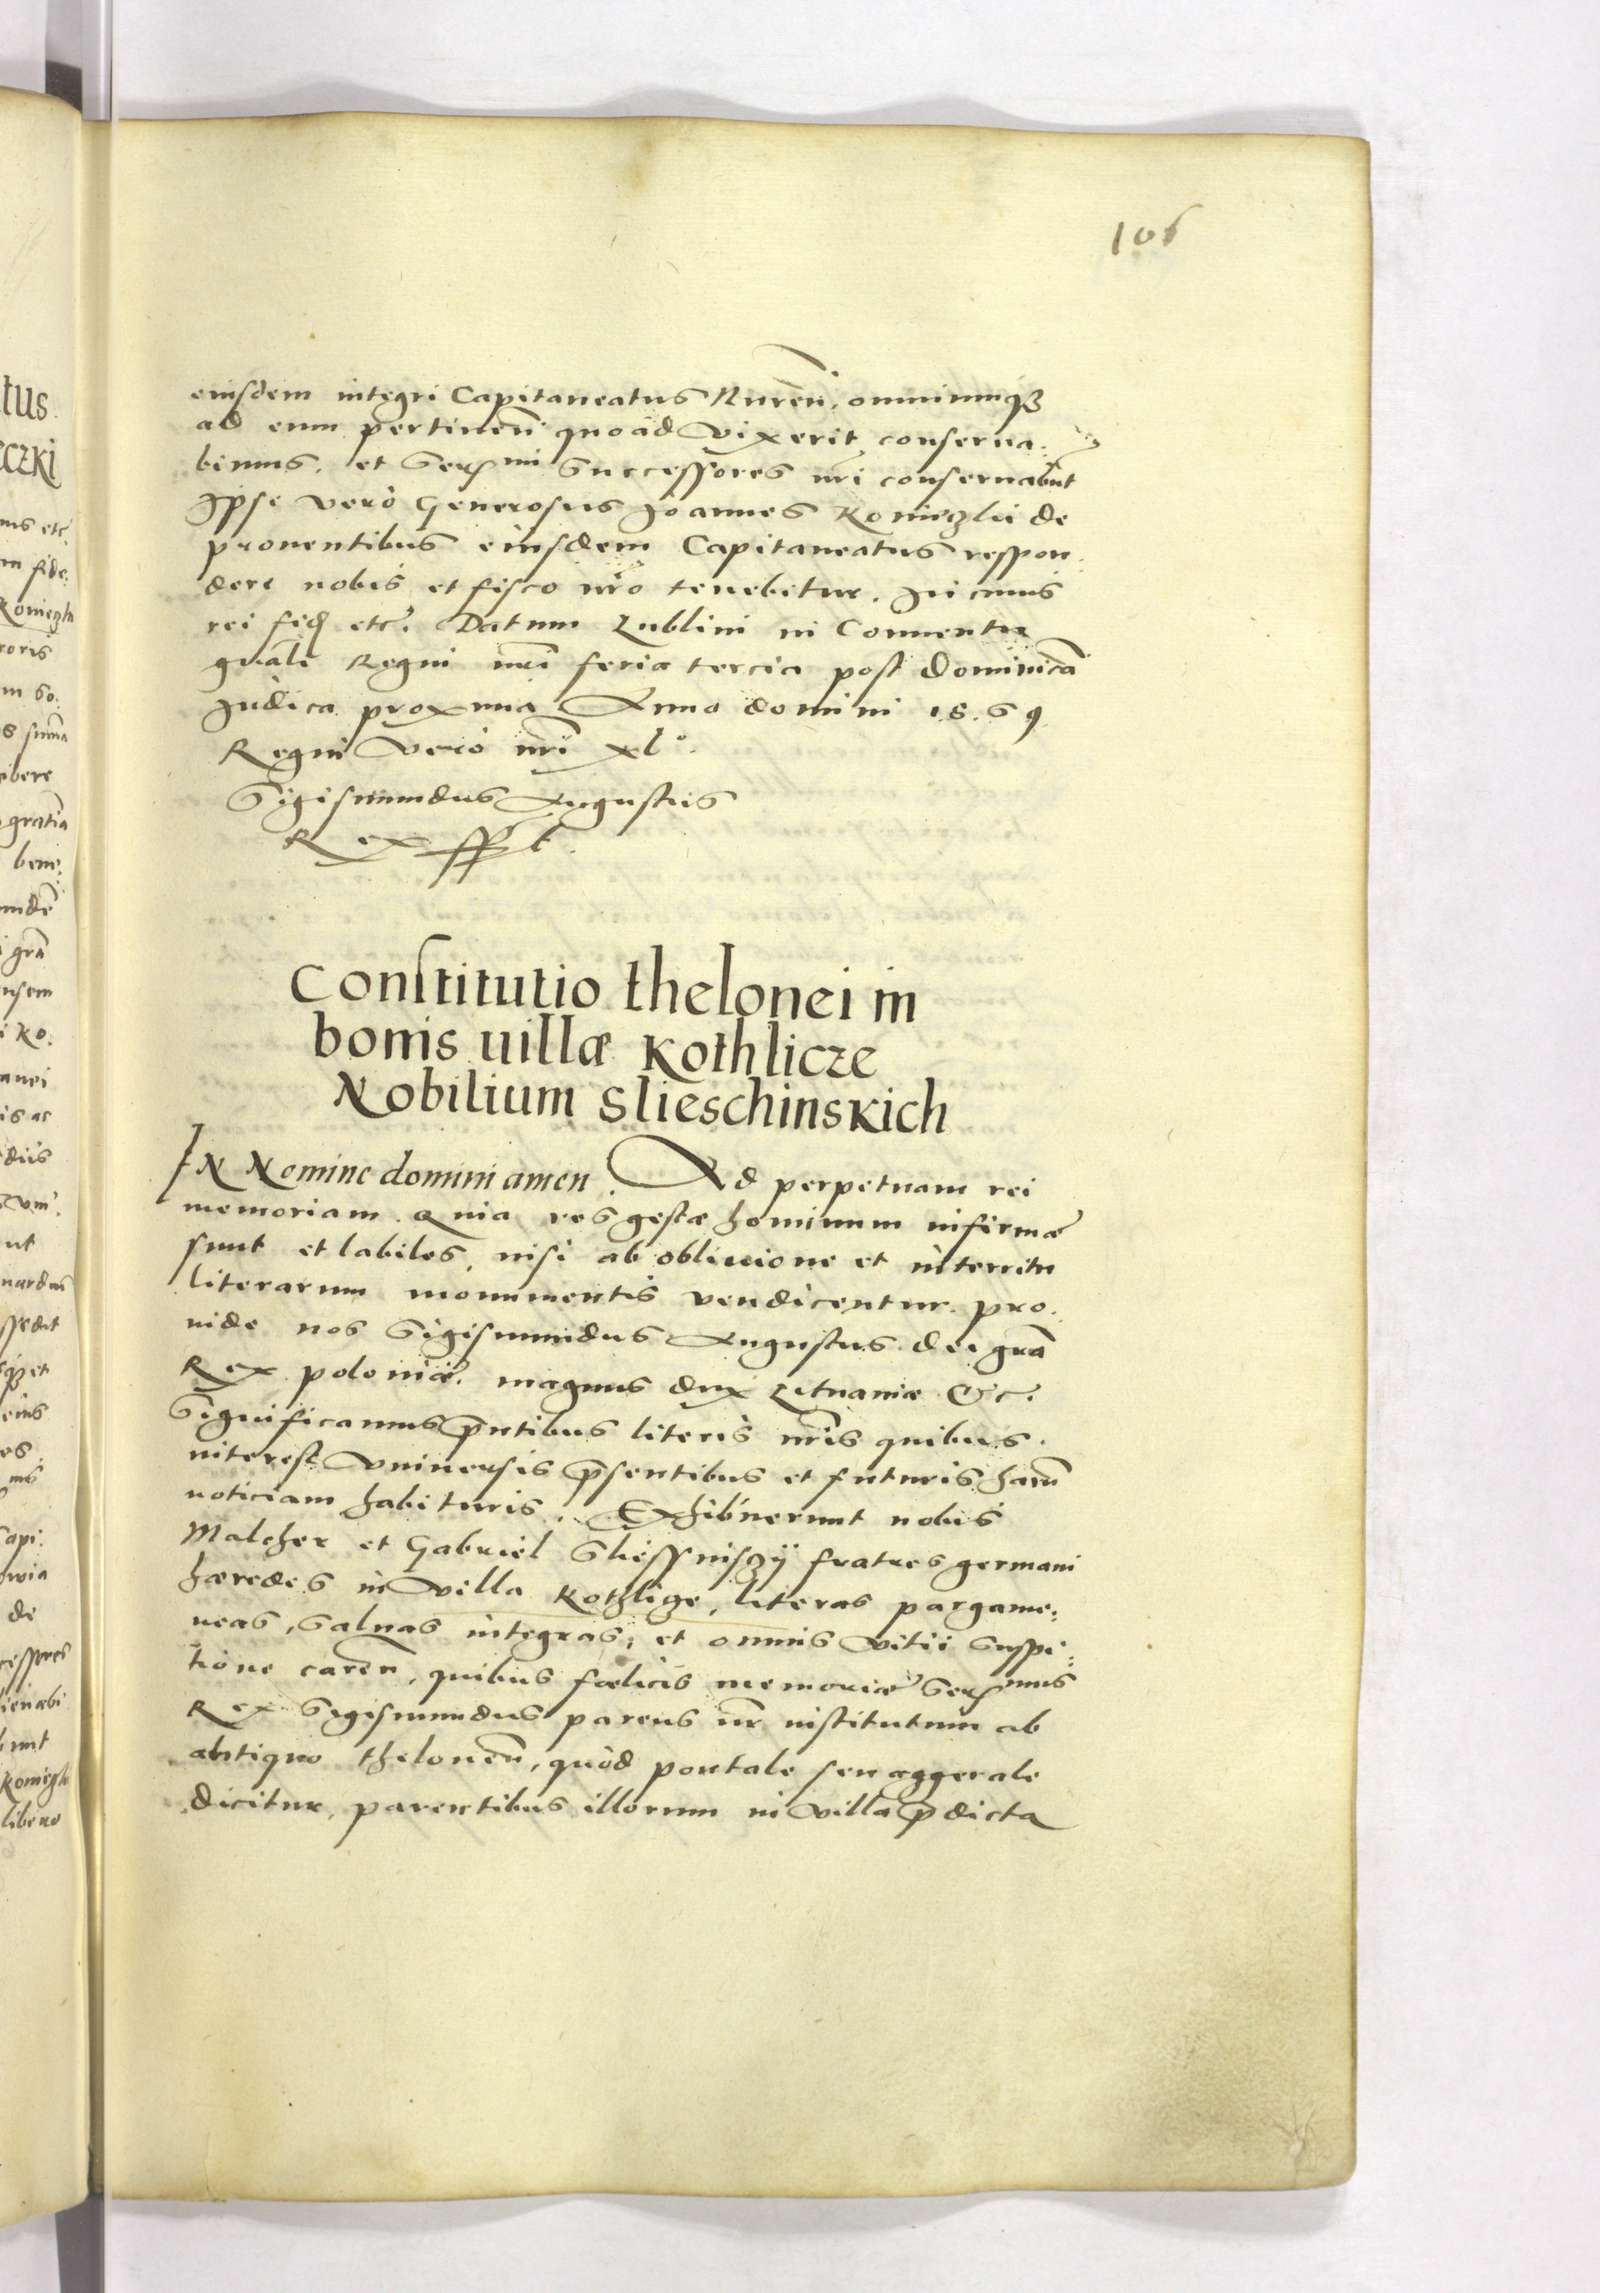 106
eiusdem integri Capitaneatus Nuren̄. omniumqȝ
ad eum pertinen̄ quoad Vixerit conserua:
bimus. et Serᵐⁱ Successores nr̄i conseruabūt
Ipse vero Generosus Ioannes Konieczki de
prouentibus eiusdem Capitaneatus respon:
dere nobis et fisco nr̄o tenebitur. In cuius
rei fid̄ etc̄. Datum Lublini in Conuentu
gn̄ali Regni nr̄i feria tercia post Dominicā
Iudica proxima Anno domini 1569
Regni Vero nr̄i xlº.
Sigismundus Augustus
Rex sspt.
Constitutio thelonei in
bonis uillæ Kothlicze
Nobilium Slieschinskich
IN Nomine domini amen. Ad perpetuam rei
memoriam. Quia res gestæ hominum infirmæ
sunt et labiles, nisi ab obliuione et interritu
literarum monumentis vendicentur. pro:
uide nos Sigismundus Augustus dei gr̄a
Rex poloniæ. magnus dux Lituaniæ &c.
Significamus p̄ntibus literis nr̄is quibus
interest Vniuersis p̄sentibus et futuris harū
noticiam habituris. Exhibuerunt nobis
Malcher et Gabriel fratres germani
hæredes in Villa Kothlicze, literas pargame:
neas, Saluas integras, et omnis Vitii Suspi:
tione caren̄, quibus fœlicis memoriæ Serᵐᵘˢ
Rex Sigismundus parens nr̄ institutum ab
antiquo theloneū, quod pontale seu aggerale
dicitur, parentibus illorum in Villa p̄dicta